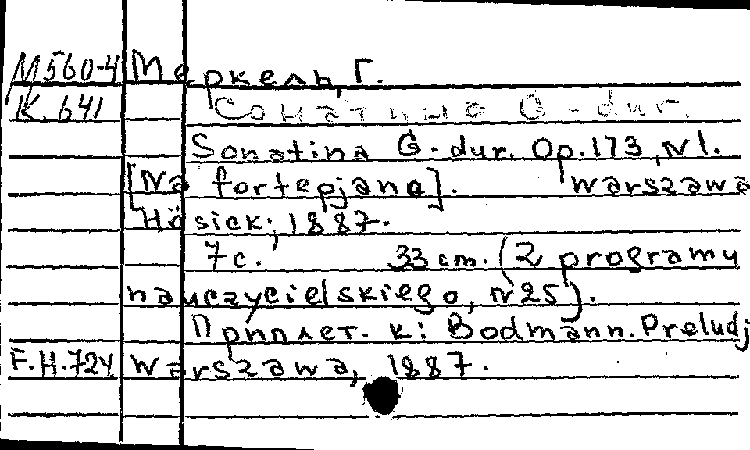 М560-4 Меркель, Г.
К. 641 Сонатина G-dur.
Sonatina G-dur. Op.173, N1.
[Na fortepjano]. Warszawa
Hösick, 1887.
7с. 33 cm. (Z programu
nauczycielskiego, N25).
Приплет. к: Bodmann. Preludj
F.H.724 Warszawa, 1887.